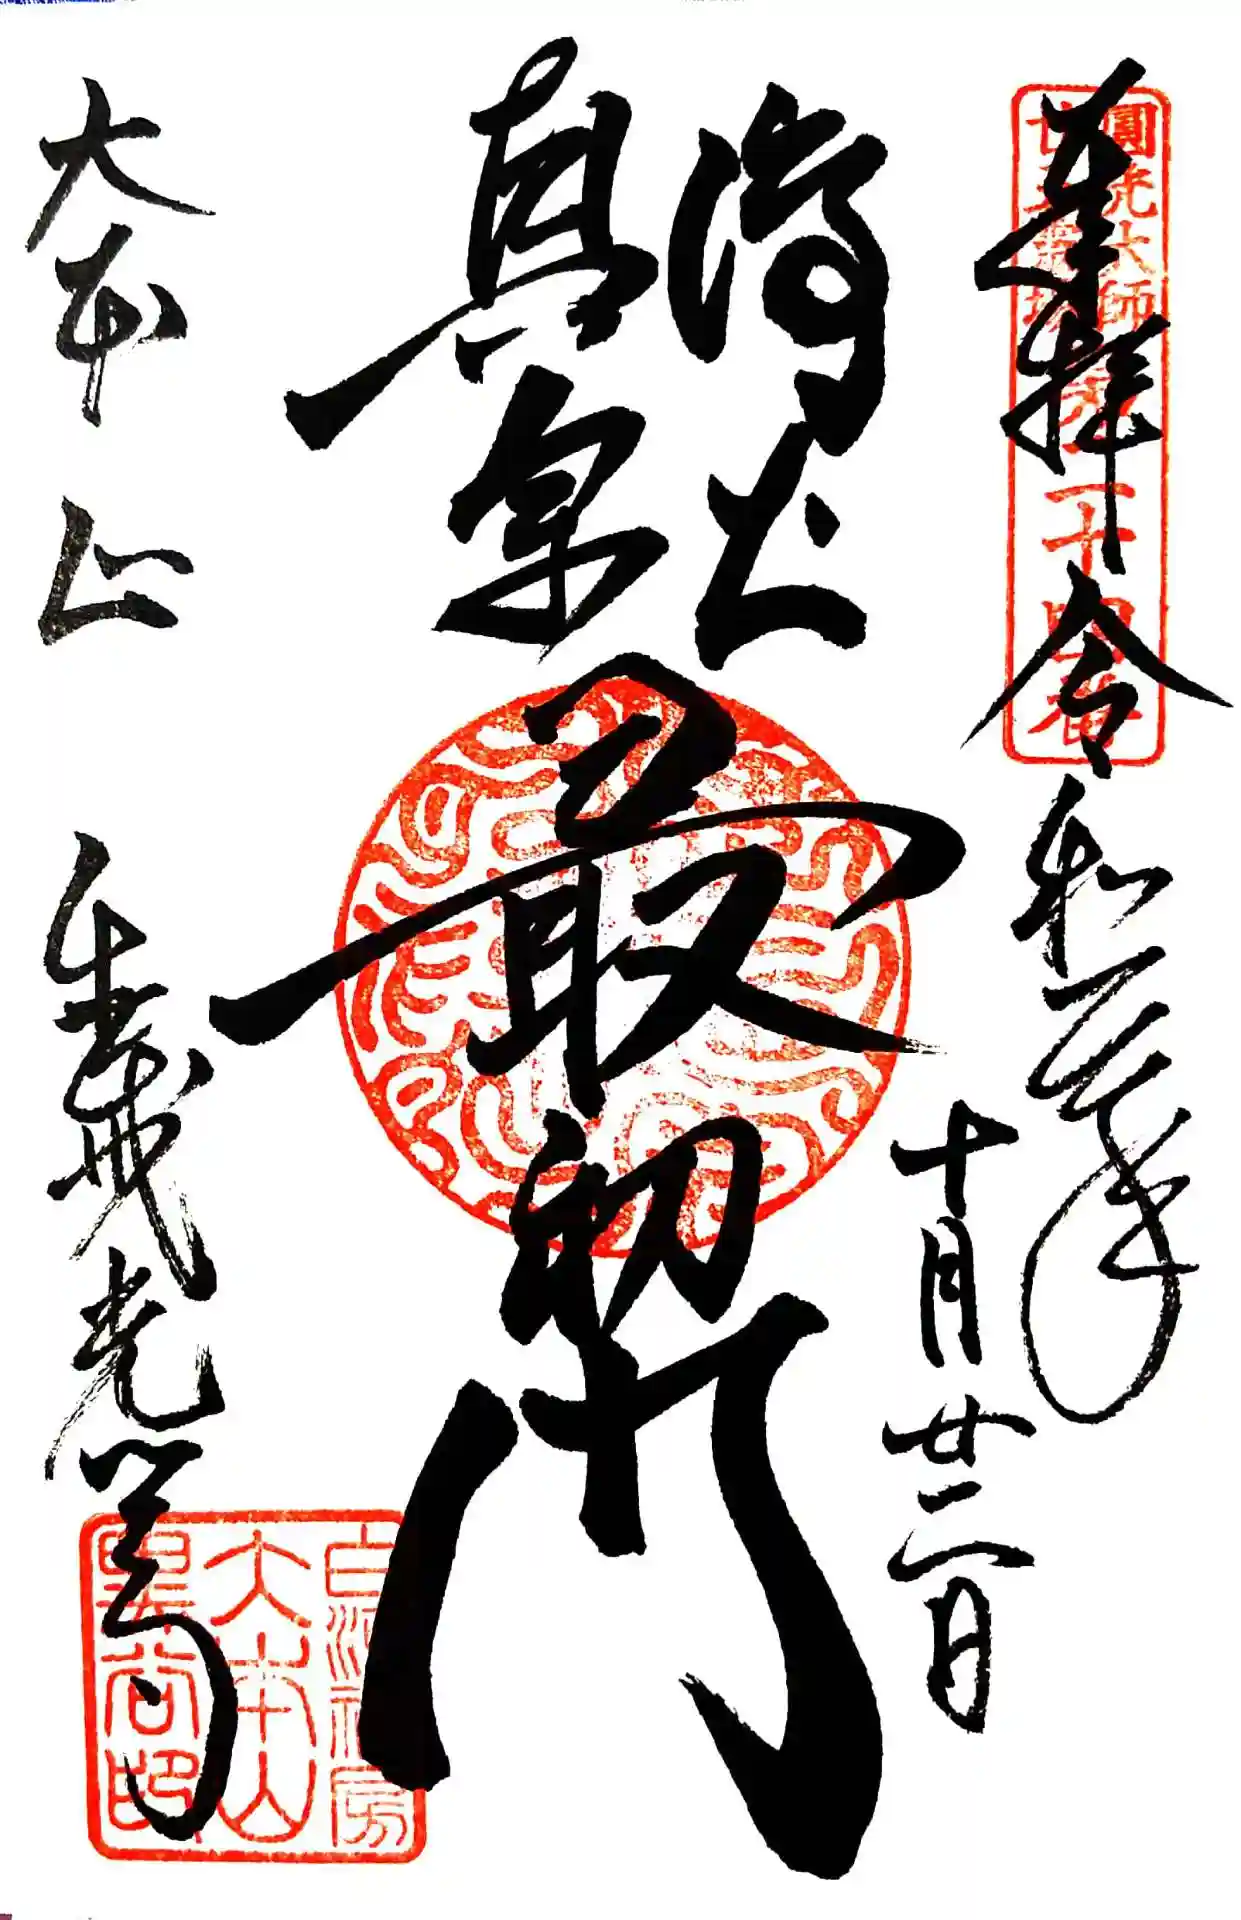 圓光大師
廿五霊場
第二十四番
奉拝 令和 年
十月廿二日
浄土
真宗
最初門
大本山 金戒光明寺
白河禅房
大本山
黒谷印